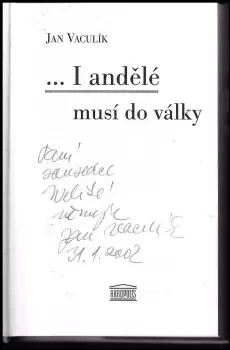 JAN VACULÍK
... I andělé
musí do války
Paní
věnuje
Jan Vaculík
31.1.2002
AKROPOLIS